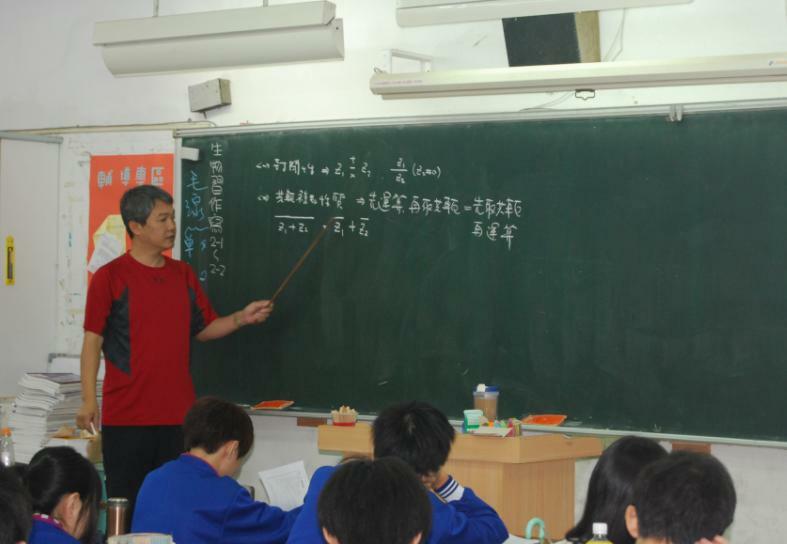 生物習作寫2-1~2-2
(1) 封閉性 ⇒ Z₁ ± Z₂ , Z₁/Z₂ (Z₂≠0)
(2) 共軛複數性質 ⇒ 先運算,再取共軛 = 先取共軛
再運算
Z̅₁̅+̅Z̅₂̅ = Z̅₁ + Z̅₂